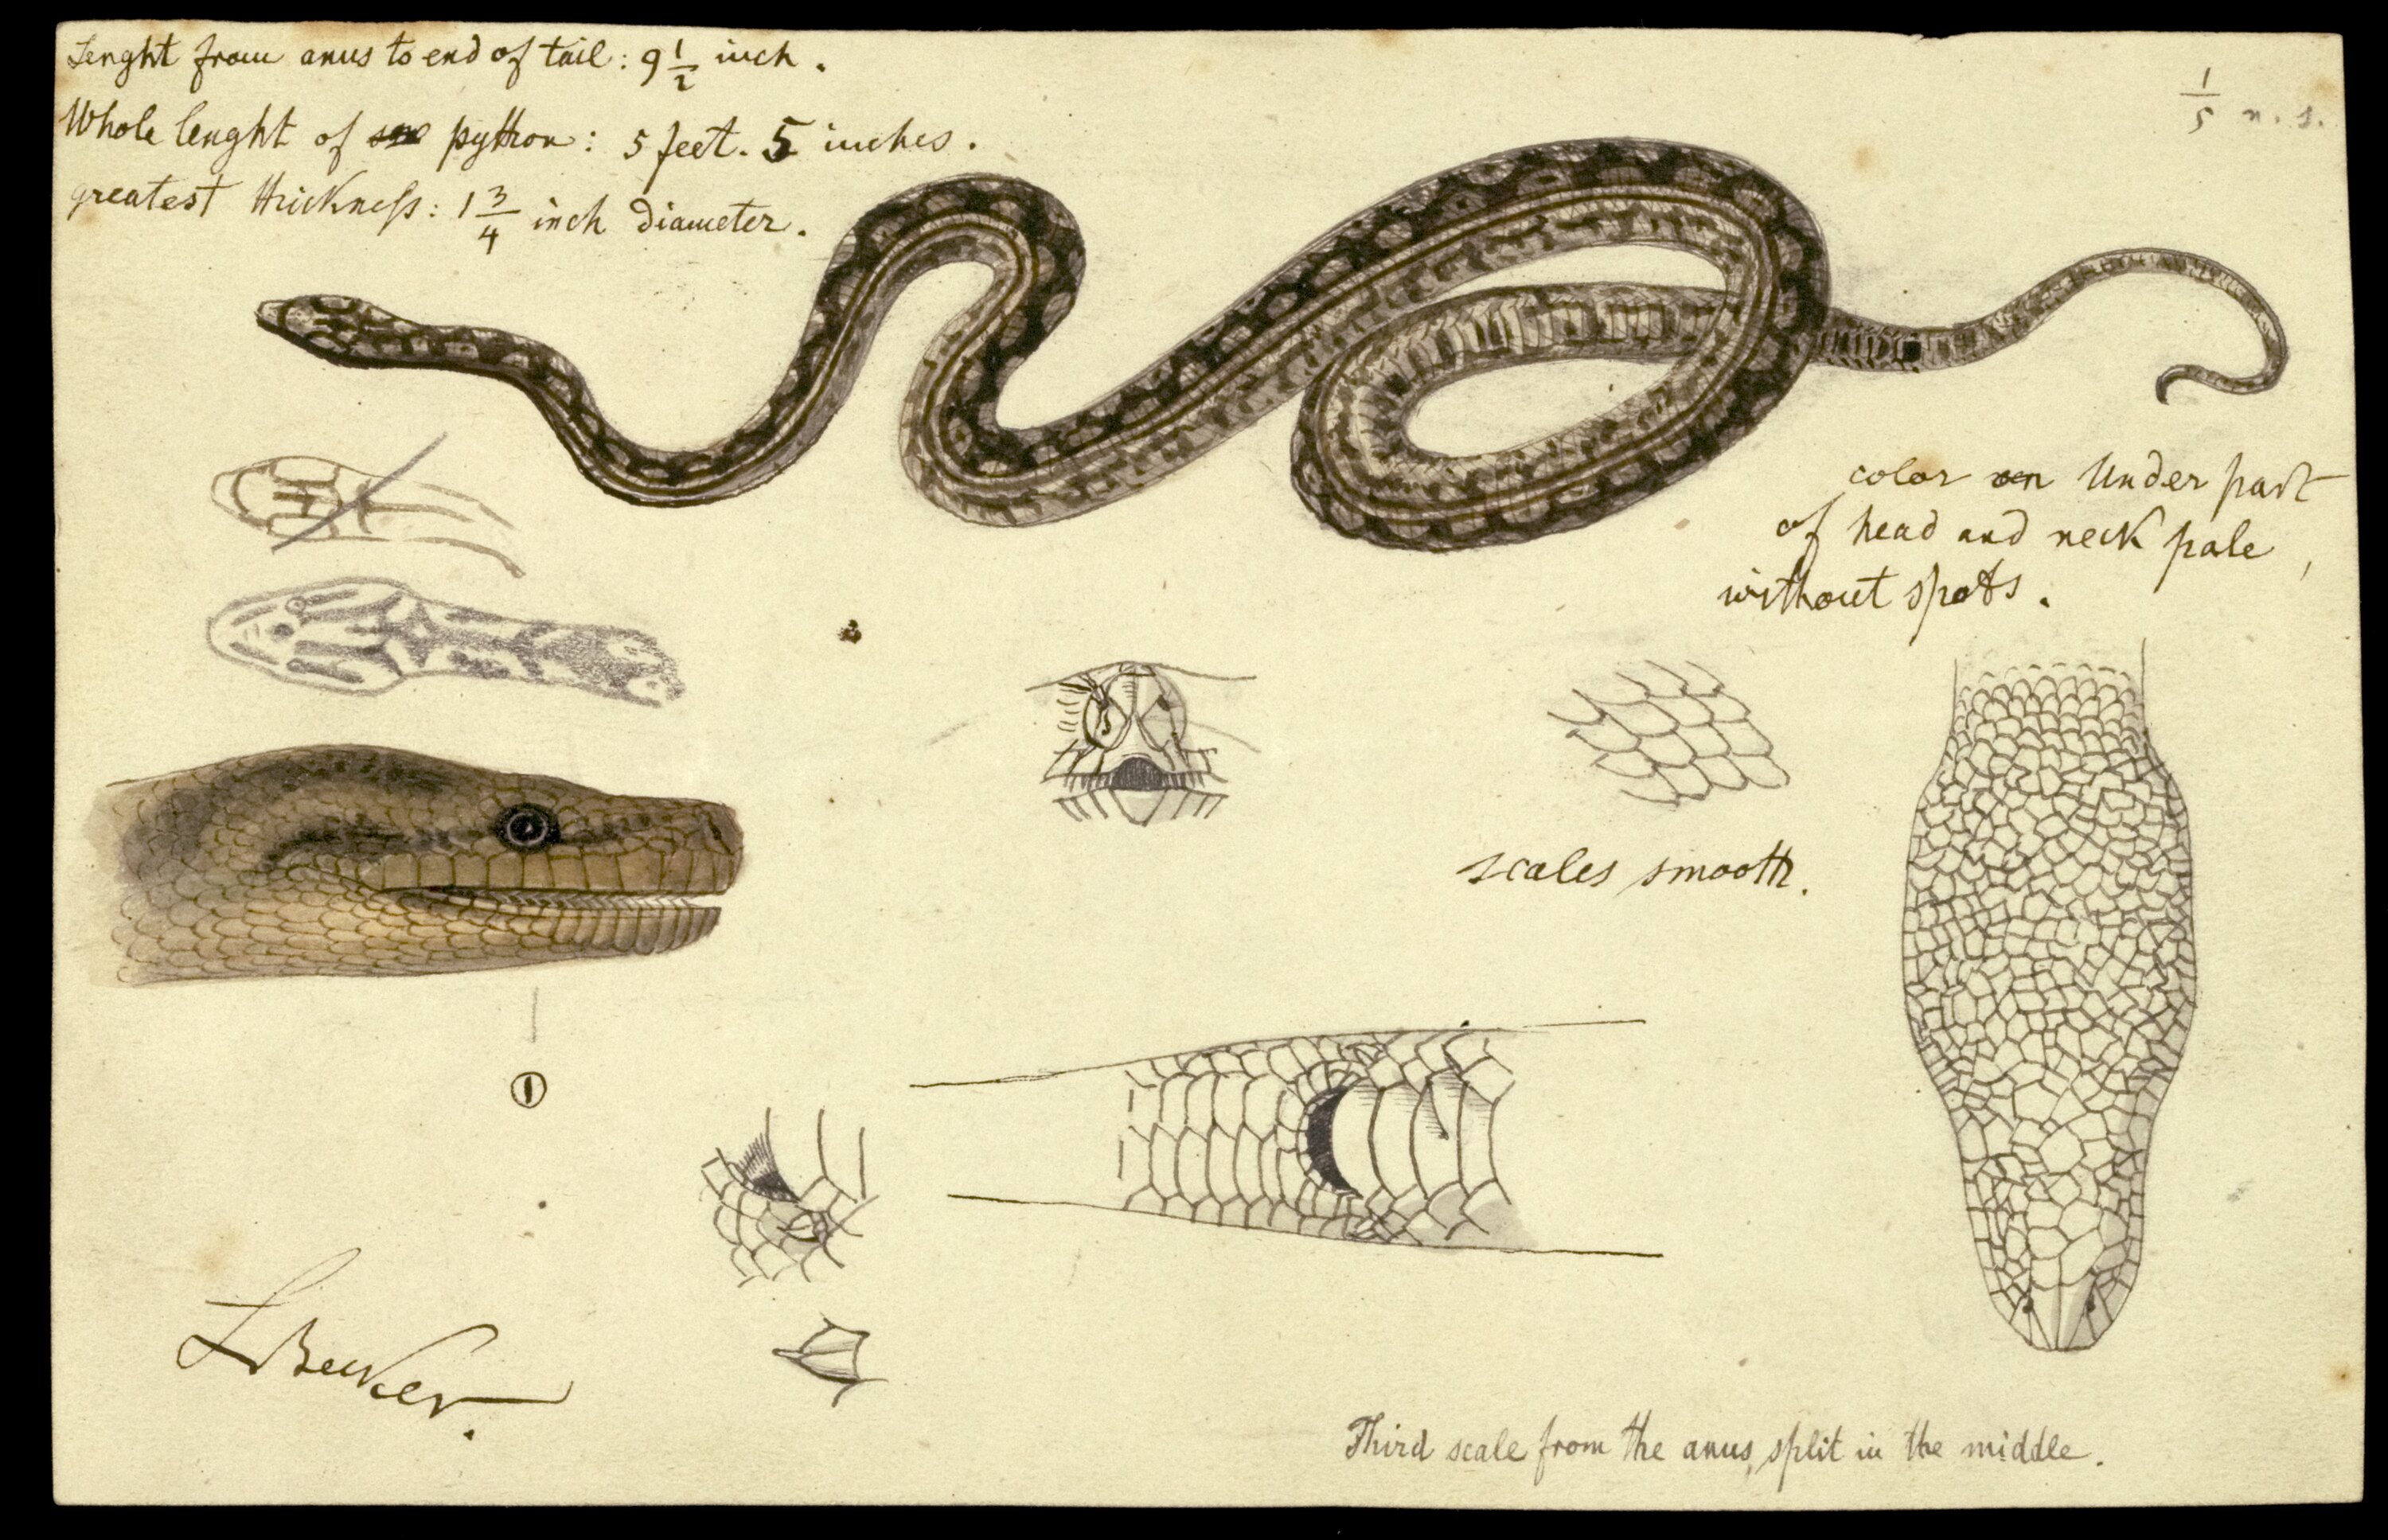 Lenght from anus to end of tail: 9 1/2 inch.
Whole lenght of python: 5 feet. 5 inches.
greatest thickness: 1 3/4 inch diameter.
1/5 n. s.
color on under part
of head and neck pale,
without spots.
scales smooth.
1
LBecker.
Third scale from the anus, split in the middle.